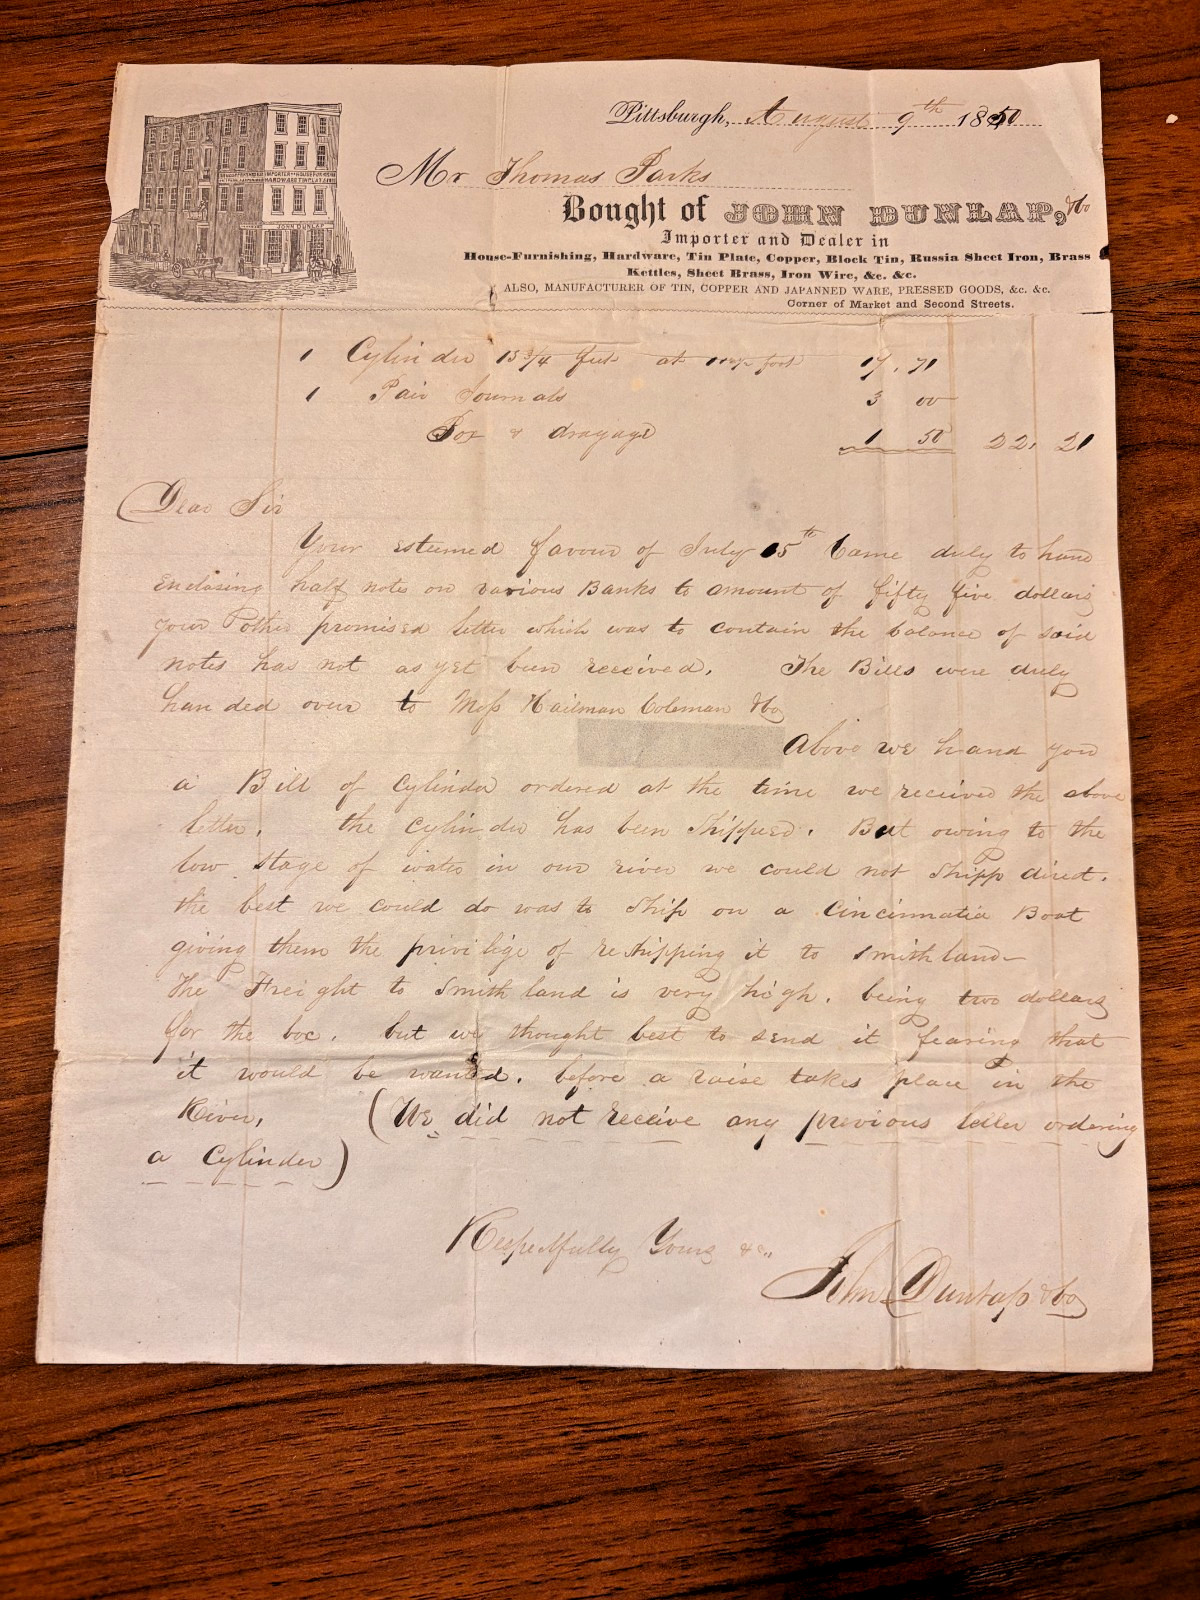 Pittsburgh, August 9th 1850
Mr Thomas Parks
Bought of JOHN DUNLAP, & Co
Importer and Dealer in
House-Furnishing, Hardware, Tin Plate, Copper, Block Tin, Russia Sheet Iron, Brass
Kettles, Sheet Brass, Iron Wire, &c. &c.
ALSO, MANUFACTURER OF TIN, COPPER AND JAPANNED WARE, PRESSED GOODS, &c. &c.
Corner of Market and Second Streets.
JOHN DUNLAP
1 Cylinder 15 3/4 feet at foot 17.71
1 Pair Journals 3 00
Box & drayage 1 50 22.21
Dear Sir
Your esteemed favour of July 15th Came duly to hand
enclosing half notes on various Banks to amount of fifty five dollars
your other promised letter which was to contain the balance of said
notes has not as yet been received. The Bills were duly
handed over to Mess Hailman Coleman & Co
Above we hand you
a Bill of Cylinder ordered at the time we received the above
letter. the Cylinder has been Shipped. But owing to the
low stage of water in our river we could not Shipp direct.
the best we could do was to Ship on a Cincinnatia Boat
giving them the privilige of reshipping it to Smithland—
The Freight to Smithland is very high. being two dollars
for the box. but we thought best to send it fearing that
it would be wanted. before a raise takes place in the
River, (We did not receive any previous letter ordering
a Cylinder)
Respectfully Yours &c.,
John Dunlap & Co